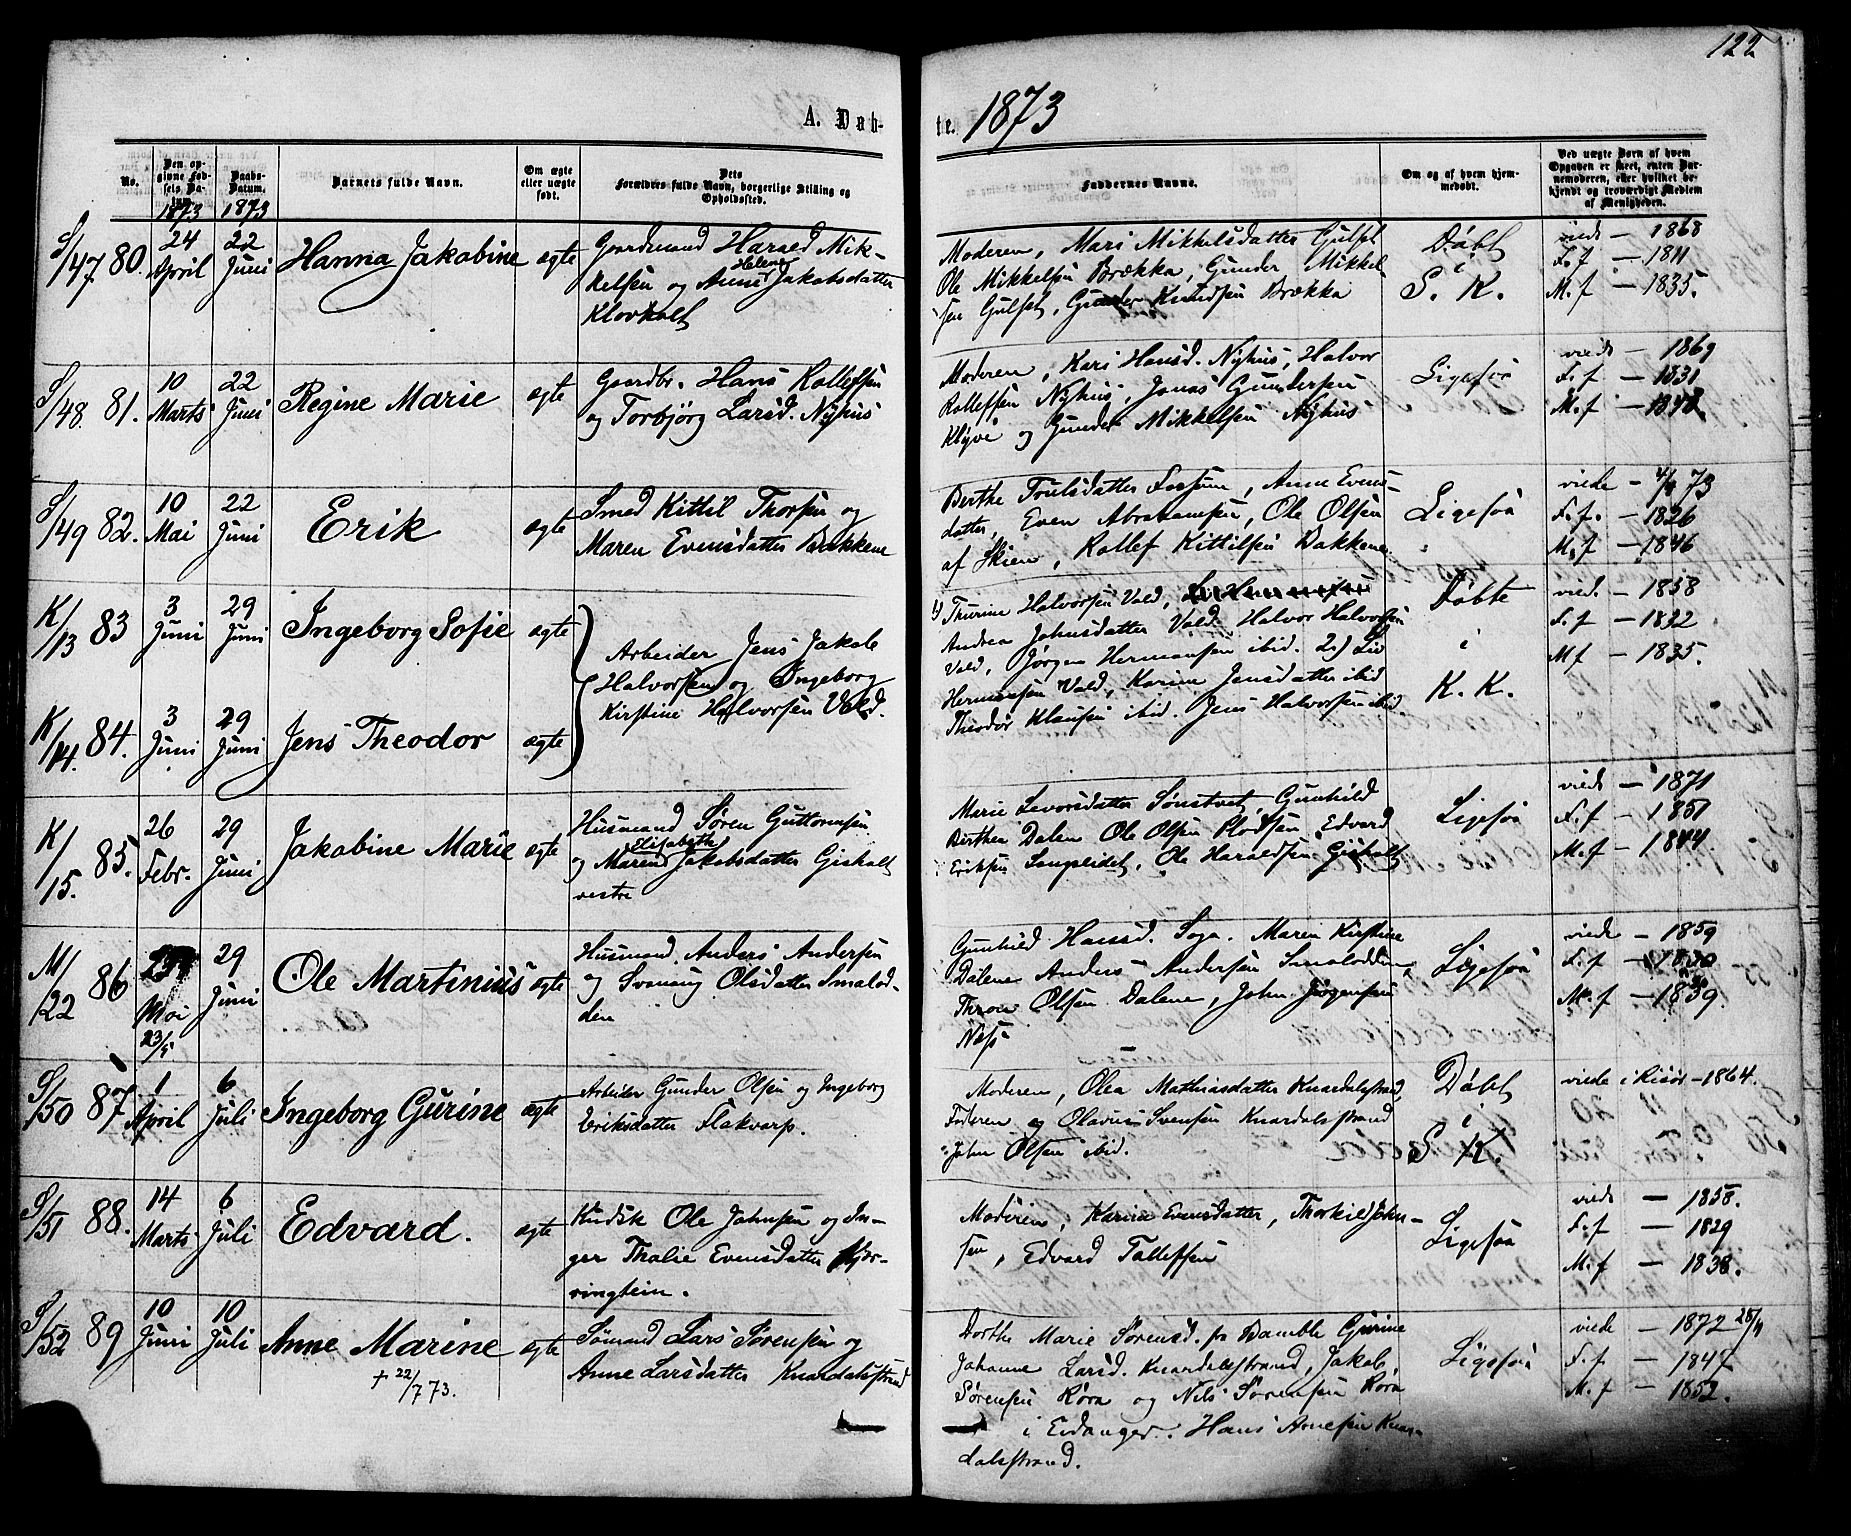 122
A. Døb-
te. 1873
No.
Den op-
givne Fød-
sels Da-
tum.
1873
Daabs-
Datum.
1873
Barnets fulde Navn.
Om ægte
eller uægte
født.
Dets
Forældres fulde Navn, borgerlige Stilling og
Opholdssted.
Faddernes Navne.
Om og af hvem hjem-
medøbt.
Ved uægte Barn af hvem
Opgaven er skeet, enten Bar-
nemoderen, eller hvilket be-
kjendt og troværdigt Medlem
af Menigheden.
S/47. 80.
24
April
22
Juni
Hanna Jakobine
ægte
Gaardmand Harald Mik-
Helene
kelsen og Anne Jakobsdatter
Klovholt
Moderen, Mari Mikkelsdatter Gulset
Ole Mikkelsen Brækka, Gunder Mikkel-
sen Gulset, Gunder Knudsen Brækka
Døbt
i
S. K.
viede — 1868
F. f — 1811
M. f — 1835.
S/48. 81.
10
Marts
22
Juni
Regine Marie
ægte
Gaardbr. Hans Rollefsen
og Torbjörg Larsd. Nyhus
Moderen, Kari Hansd. Nyhus, Halvor
Rollefsen Nyhus, Jonas Gundersen
Klyve og Gunder Mikkelsen Nyhus
Ligesaa
viede — 1869
F. f — 1831
M. f — 1848.
S/49 82.
10
Mai
22
Juni
Erik
ægte
Smed Kittil Thorsen og
Maren Evensdatter Bakkene
Berthe Trulsdatter Fossum, Anne Evens-
datter, Even Abrahamsen, Ole Olsen
af Skien, Rollef Kittilsen Bakkene
Ligesaa
viede — 4/4 73
F. f. — 1826
M. f — 1846
K/13 83
3
Juni
29
Juni
Ingeborg Sofie
ægte
Arbeider Jens Jakob
Halvorsen og Ingeborg
Kirstine Halvorsen Vold.
1) Thurine Halvorsen Vold,
Andrea Johnsdatter Vold, Halvor Halvorsen
Vold, Jørgen Hermansen ibid. 2.) Liv
Hermansen Vold, Karine Jensdatter ibid
Theodor Klausen ibid. Jens Halvorsen ibid.
Døbte
i
K. K.
vied. — 1858
F. f — 1832
M f — 1835.
K/14. 84.
3
Juni
29
Juni
Jens Theodor
ægte
K/15. 85.
26
Febr.
29
Juni
Jakobine Marie
ægte
Husmand Søren Guttormsen
Elisabeth
og Maren Jakobsdatter Gisholt
vestre
Marie Levorsdatter Sønstvet, Gunhild
Berthea Dalen Ole Olsen Edvard
Eriksen Langslidet, Ole Haraldsen Gisholt
Ligesaa
viede — 1871
F. f — 1851
M. f — 1844.
M/22 86
Mai
23/5
29
Juni
Ole Martinius
ægte
Husmand Anders Andersen
og Svanaug Olsdatter Smalod-
den
Gunhild Hansd. Soga. Maren Kirstine
Dalene Anders Andersen Smalodden,
Thron Olsen Dalene, John Jørgensen
Næs
Ligesaa
viede — 1859
F. f — 1830
M. f — 1839.
S/50 87
1
April
6
Juli
Ingeborg Gurine
ægte
Arbeider Gunder Olsen og Ingeborg
Eriksdatter Flakvarp.
Moderen, Olea Mathiasdatter Knardalsstrand,
Faderen og Olavus Svensen Knardalsstrand
John Olsen ibid.
Døbt
i
S. K.
viede i Risør — 1864.
S/51 88.
14
Marts
6
Juli
Edvard.
ægte
Kudsk Ole Johnsen og In-
ger Thalie Evensdatter Hjør-
ringtein.
Moderen, Karine Evensdatter, Thorkild John-
sen, Edvard Tollefsen
Ligesaa
viede — 1858.
F. f — 1829
M. f — 1838.
S/52 89
10
Juni
10
Juli
Anne Marine
+ 22/7 73.
ægte
Sømand Lars Sørensen og
Anne Larsdatter Knardalsstrand
Dorthe Marie Sørensd. fra Bamble Gurine
Johanne Larsd. Knardalsstrand, Jakob
Sørensen Røra og Nils Sørensen Røra
i Eidanger. Hans Arnesen Knar-
dalsstrand.
Ligesaa
viede — 1872 28/11
F. f — 1847
M. f — 1852.